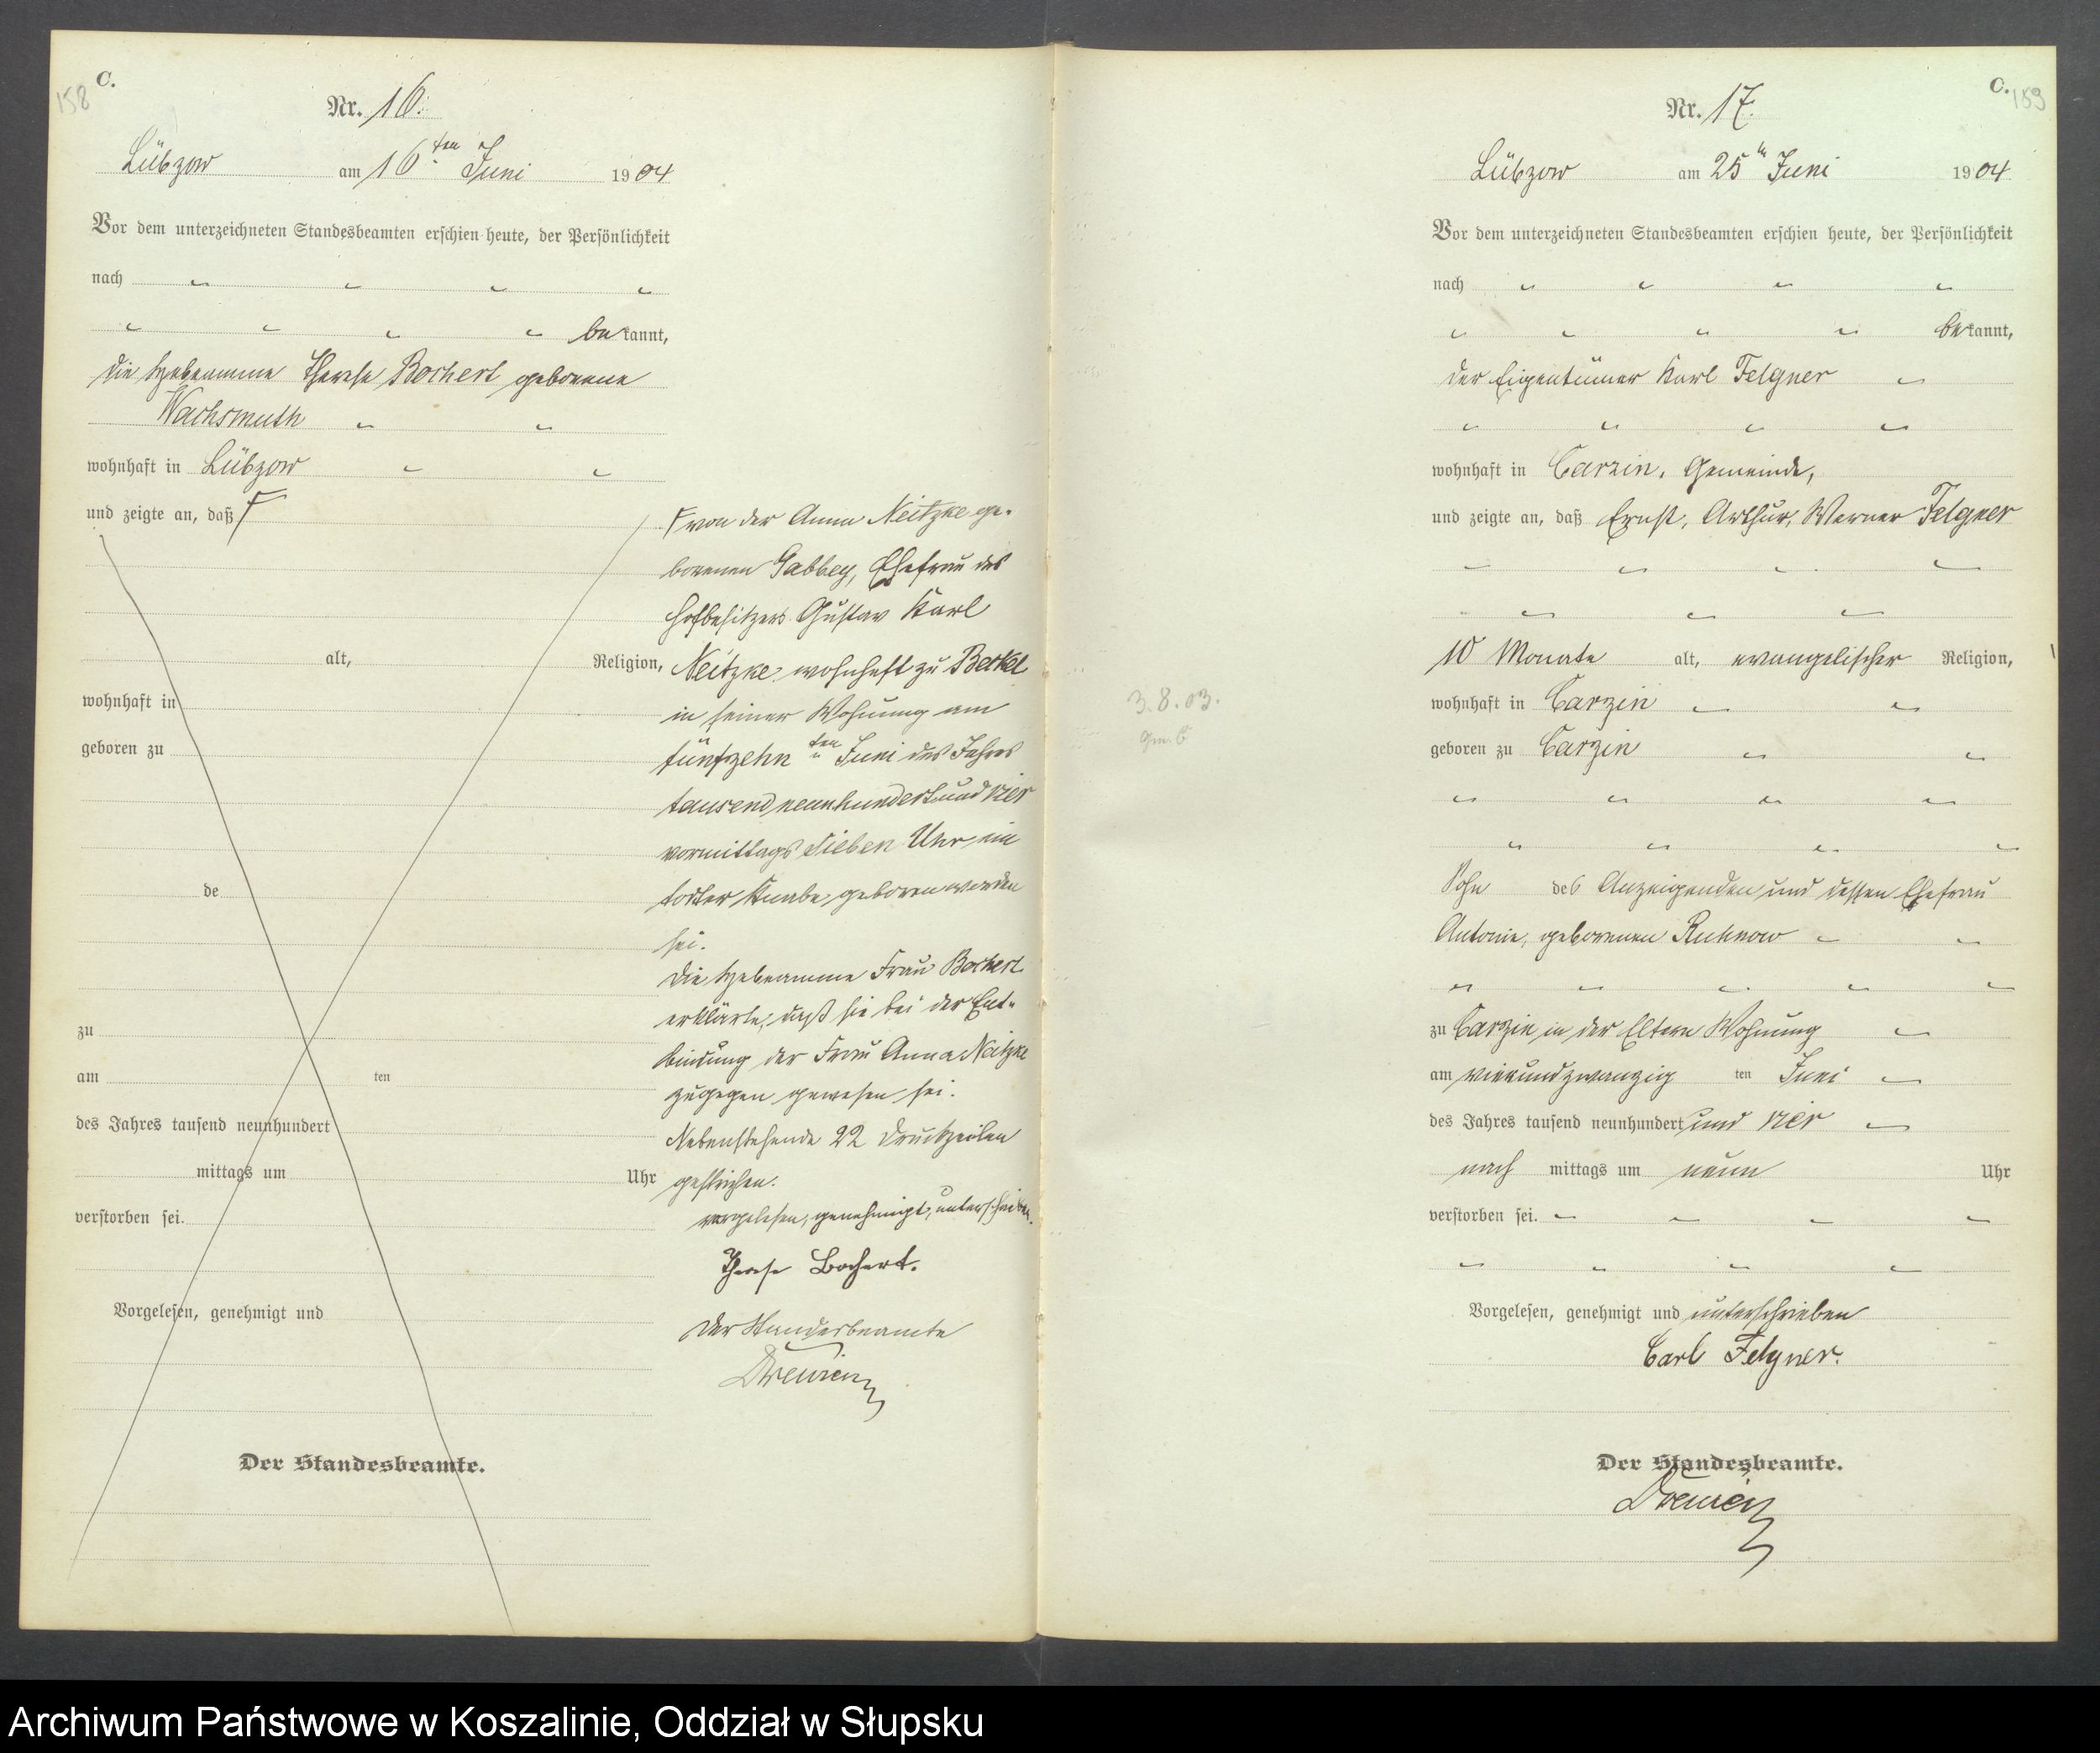 158
C.
Nr. 16.
Lübzow am 16ten Juni 1904
Vor dem unterzeichneten Standesbeamten erschien heute, der Persönlichkeit
nach
bekannt,
die Hebeamme Therese Bochert geborene
Wachsmuth
wohnhaft in Lübzow
und zeigte an, daß
alt, Religion,
wohnhaft in
geboren zu
de
zu
am ten
des Jahres tausend neunhundert
mittags um Uhr
verstorben sei.
Vorgelesen, genehmigt und
Der Standesbeamte.
von der Anna Neitzke ge-
borenen Gabbey, Ehefrau des
Hofbesitzers Gustav Karl
Neitzke wohnhaft zu
in seiner Wohnung am
fünfzehnten Juni des Jahres
tausend neunhundert und vier
vormittags sieben Uhr ein
todter Knabe geboren worden
sei.
Die Hebeamme Frau Bochert
erklärte, daß sie bei der Ent-
bindung der Frau Anna Neitzke
zugegen gewesen sei.
Nebenstehende 22 Druckzeilen
gestrichen.
vorgelesen, genehmigt, unterschrieben.
Therese Bochert.
Der Standesbeamte
C.
159
Nr. 17.
Lübzow am 25ten Juni 1904
Vor dem unterzeichneten Standesbeamten erschien heute, der Persönlichkeit
nach
bekannt,
der Eigentümer Karl Felgner
wohnhaft in Carzin, Gemeinde,
und zeigte an, daß Ernst, Arthur, Werner Felgner
10 Monate alt, evangelischer Religion,
3.8.03.
wohnhaft in Carzin
geboren zu Carzin
Sohn des Anzeigenden und dessen Ehefrau
Antonie, geborenen Ruhnow
zu Carzin in der Eltern Wohnung
am vierundzwanzig ten Juni
des Jahres tausend neunhundert und vier
nach mittags um neun Uhr
verstorben sei.
Vorgelesen, genehmigt und unterschrieben
Carl Felgner.
Der Standesbeamte.
Archiwum Państwowe w Koszalinie, Oddział w Słupsku